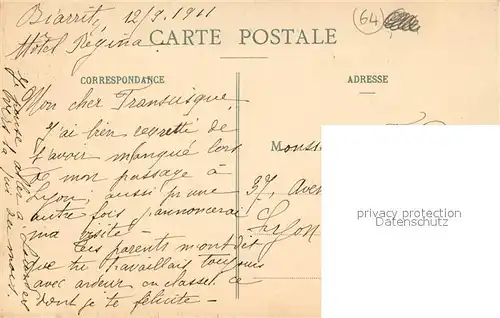 Biarritz, 12/9.1911
Hôtel Régina
64
CARTE POSTALE
CORRESPONDANCE
ADRESSE
Mon cher
J'ai bien regretté de
t'avoir manqué lors
de mon passage à
Lyon; aussi pr une
autre fois j'annoncerai
ma visite -
Tes parents m'ont dit
que tu travaillais toujours
avec ardeur en classe, ce
dont je te félicite -
Je pense aller à
vers la fin du mois.
Monsi
37, Aven
Lyon
privacy protection
oldthing.de